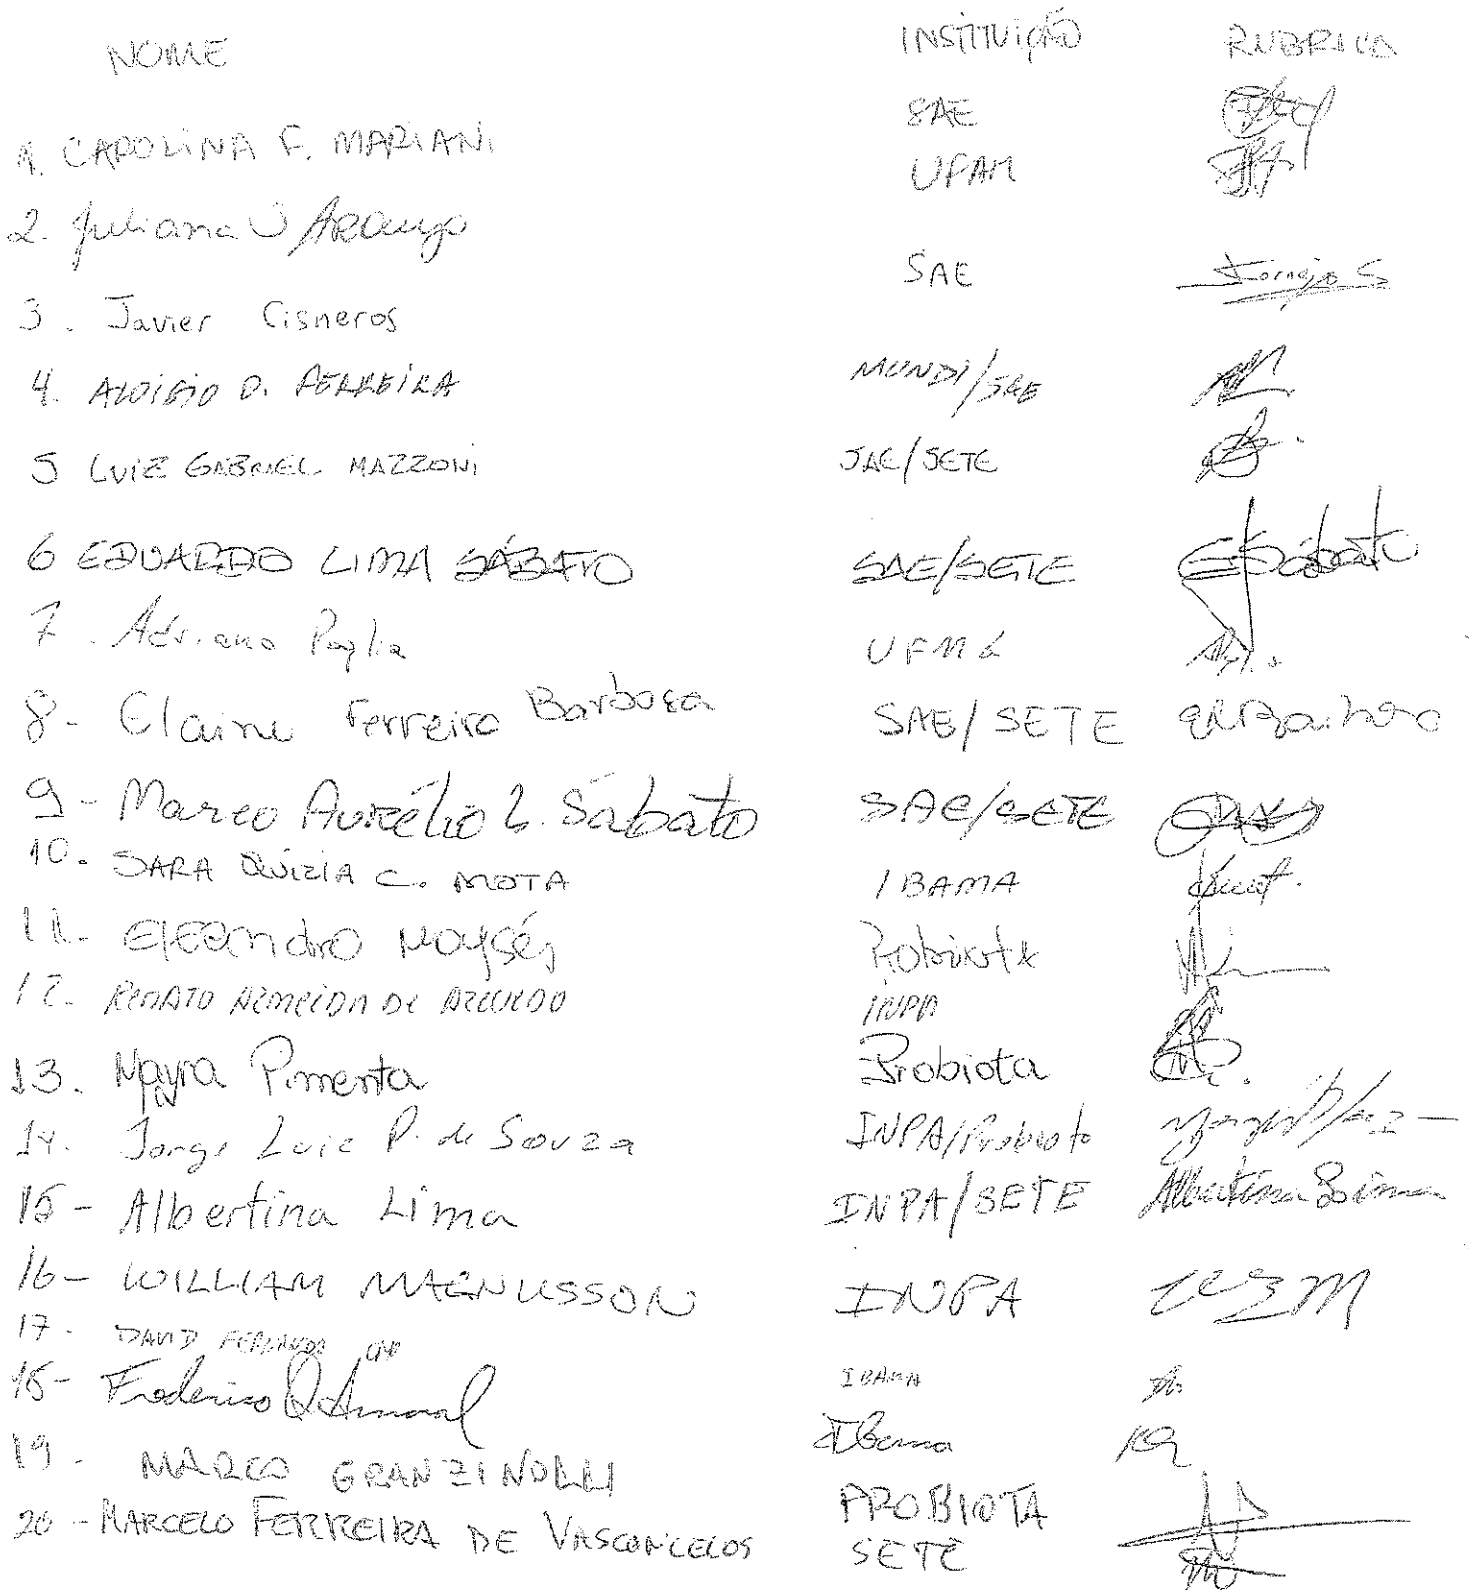 NOME INSTITUIÇÃO RUBRICA
1. CAROLINA F. MARIANI SAE
2. Juliana Araujo UFAM
3. Javier Cisneros SAE
4. ALOISIO D. FERREIRA MUNDI/SAE
5 LUIZ GABRIEL MAZZONI SAE/SETE
6 EDUARDO LIMA SÁBATO SAE/SETE ESábato
7. Adriano Paglia UFMG
8- Elaine Ferreira Barbosa SAE/SETE
9- Marco Aurélio L. Sábato SAE/SETE
10. SARA QUIZIA C. MOTA IBAMA
11- Eleandro Moysés Probiota
12- RENATO ALMEIDA DE AZEVEDO INPA
13. Mayra Pimenta Probiota
14. Jorge Luiz P. de Souza INPA/Probiota
15- Albertina Lima INPA/SETE Albertina Lima
16- WILLIAM MAGNUSSON INPA
17. DAVID FERNANDO IBAMA
18- Frederico Q Amaral IBama
19. MARCO GRANZINOLLI PROBIOTA
20- MARCELO FERREIRA DE VASCONCELOS SETE